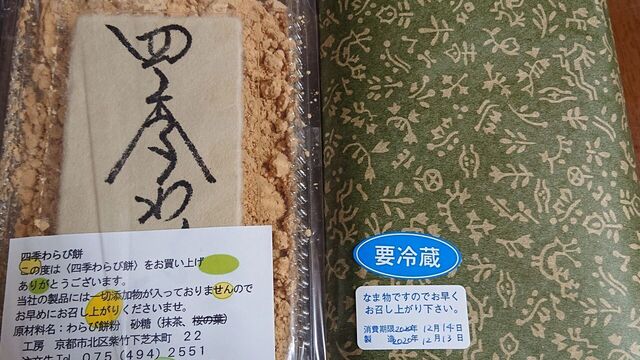 四季わ
四季わらび餅
この度は〈四季わらび餅〉をお買い上げ
ありがとうございます。
当社の製品には一切添加物が入っておりませんので
お早めにお召し上がりくださいませ。
原材料名:わらび餅粉 砂糖(抹茶、桜の葉)
工房 京都市北区紫竹下芝本町 22
注文先 Tel 075(494)2551
要冷蔵
なま物ですのでお早く
お召し上がり下さい。
消費期限2020年12月14日
製造2020年12月13日